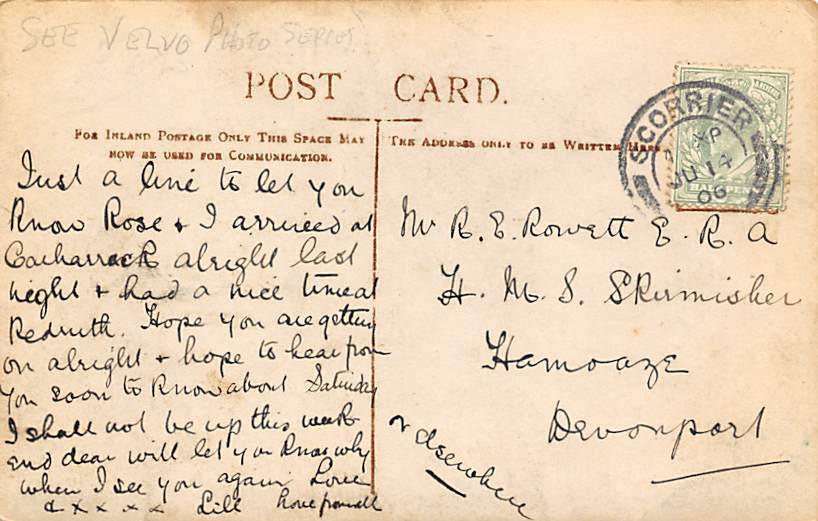 SEE VELVO PHOTO SERIES
POST CARD.
FOR INLAND POSTAGE ONLY THIS SPACE MAY
NOW BE USED FOR COMMUNICATION.
THE ADDRESS ONLY TO BE WRITTEN HERE
SCORRIER
JU 14
06
HALFPENNY
Just a line to let you
Know Rose + I arrived at
Carharrack alright last
night + had a nice time at
Redruth. Hope you are getting
on alright + hope to hear from
you soon to Know about Saturday
I shall not be up this week
end dear will let you Know why
when I see you again Love
x x x x Lill love from all
Mr R. E. Rowett E. R. A
H. M. S. Skirmisher
Hamoaze
Devonport
or elsewhere